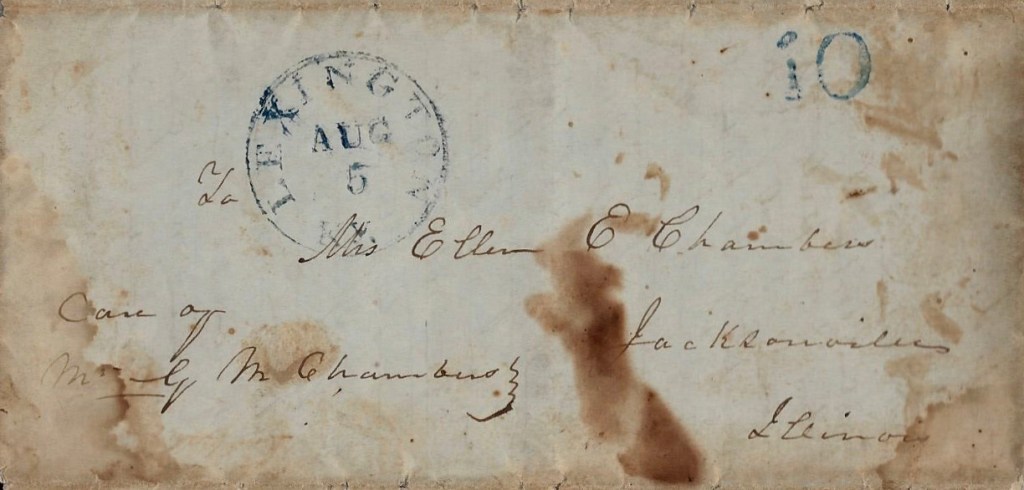 10
LEXINGTON
AUG
5
To
Mrs Ellen E Chambers
Care of
Mr G M Chambers
Jacksonville
Illinois